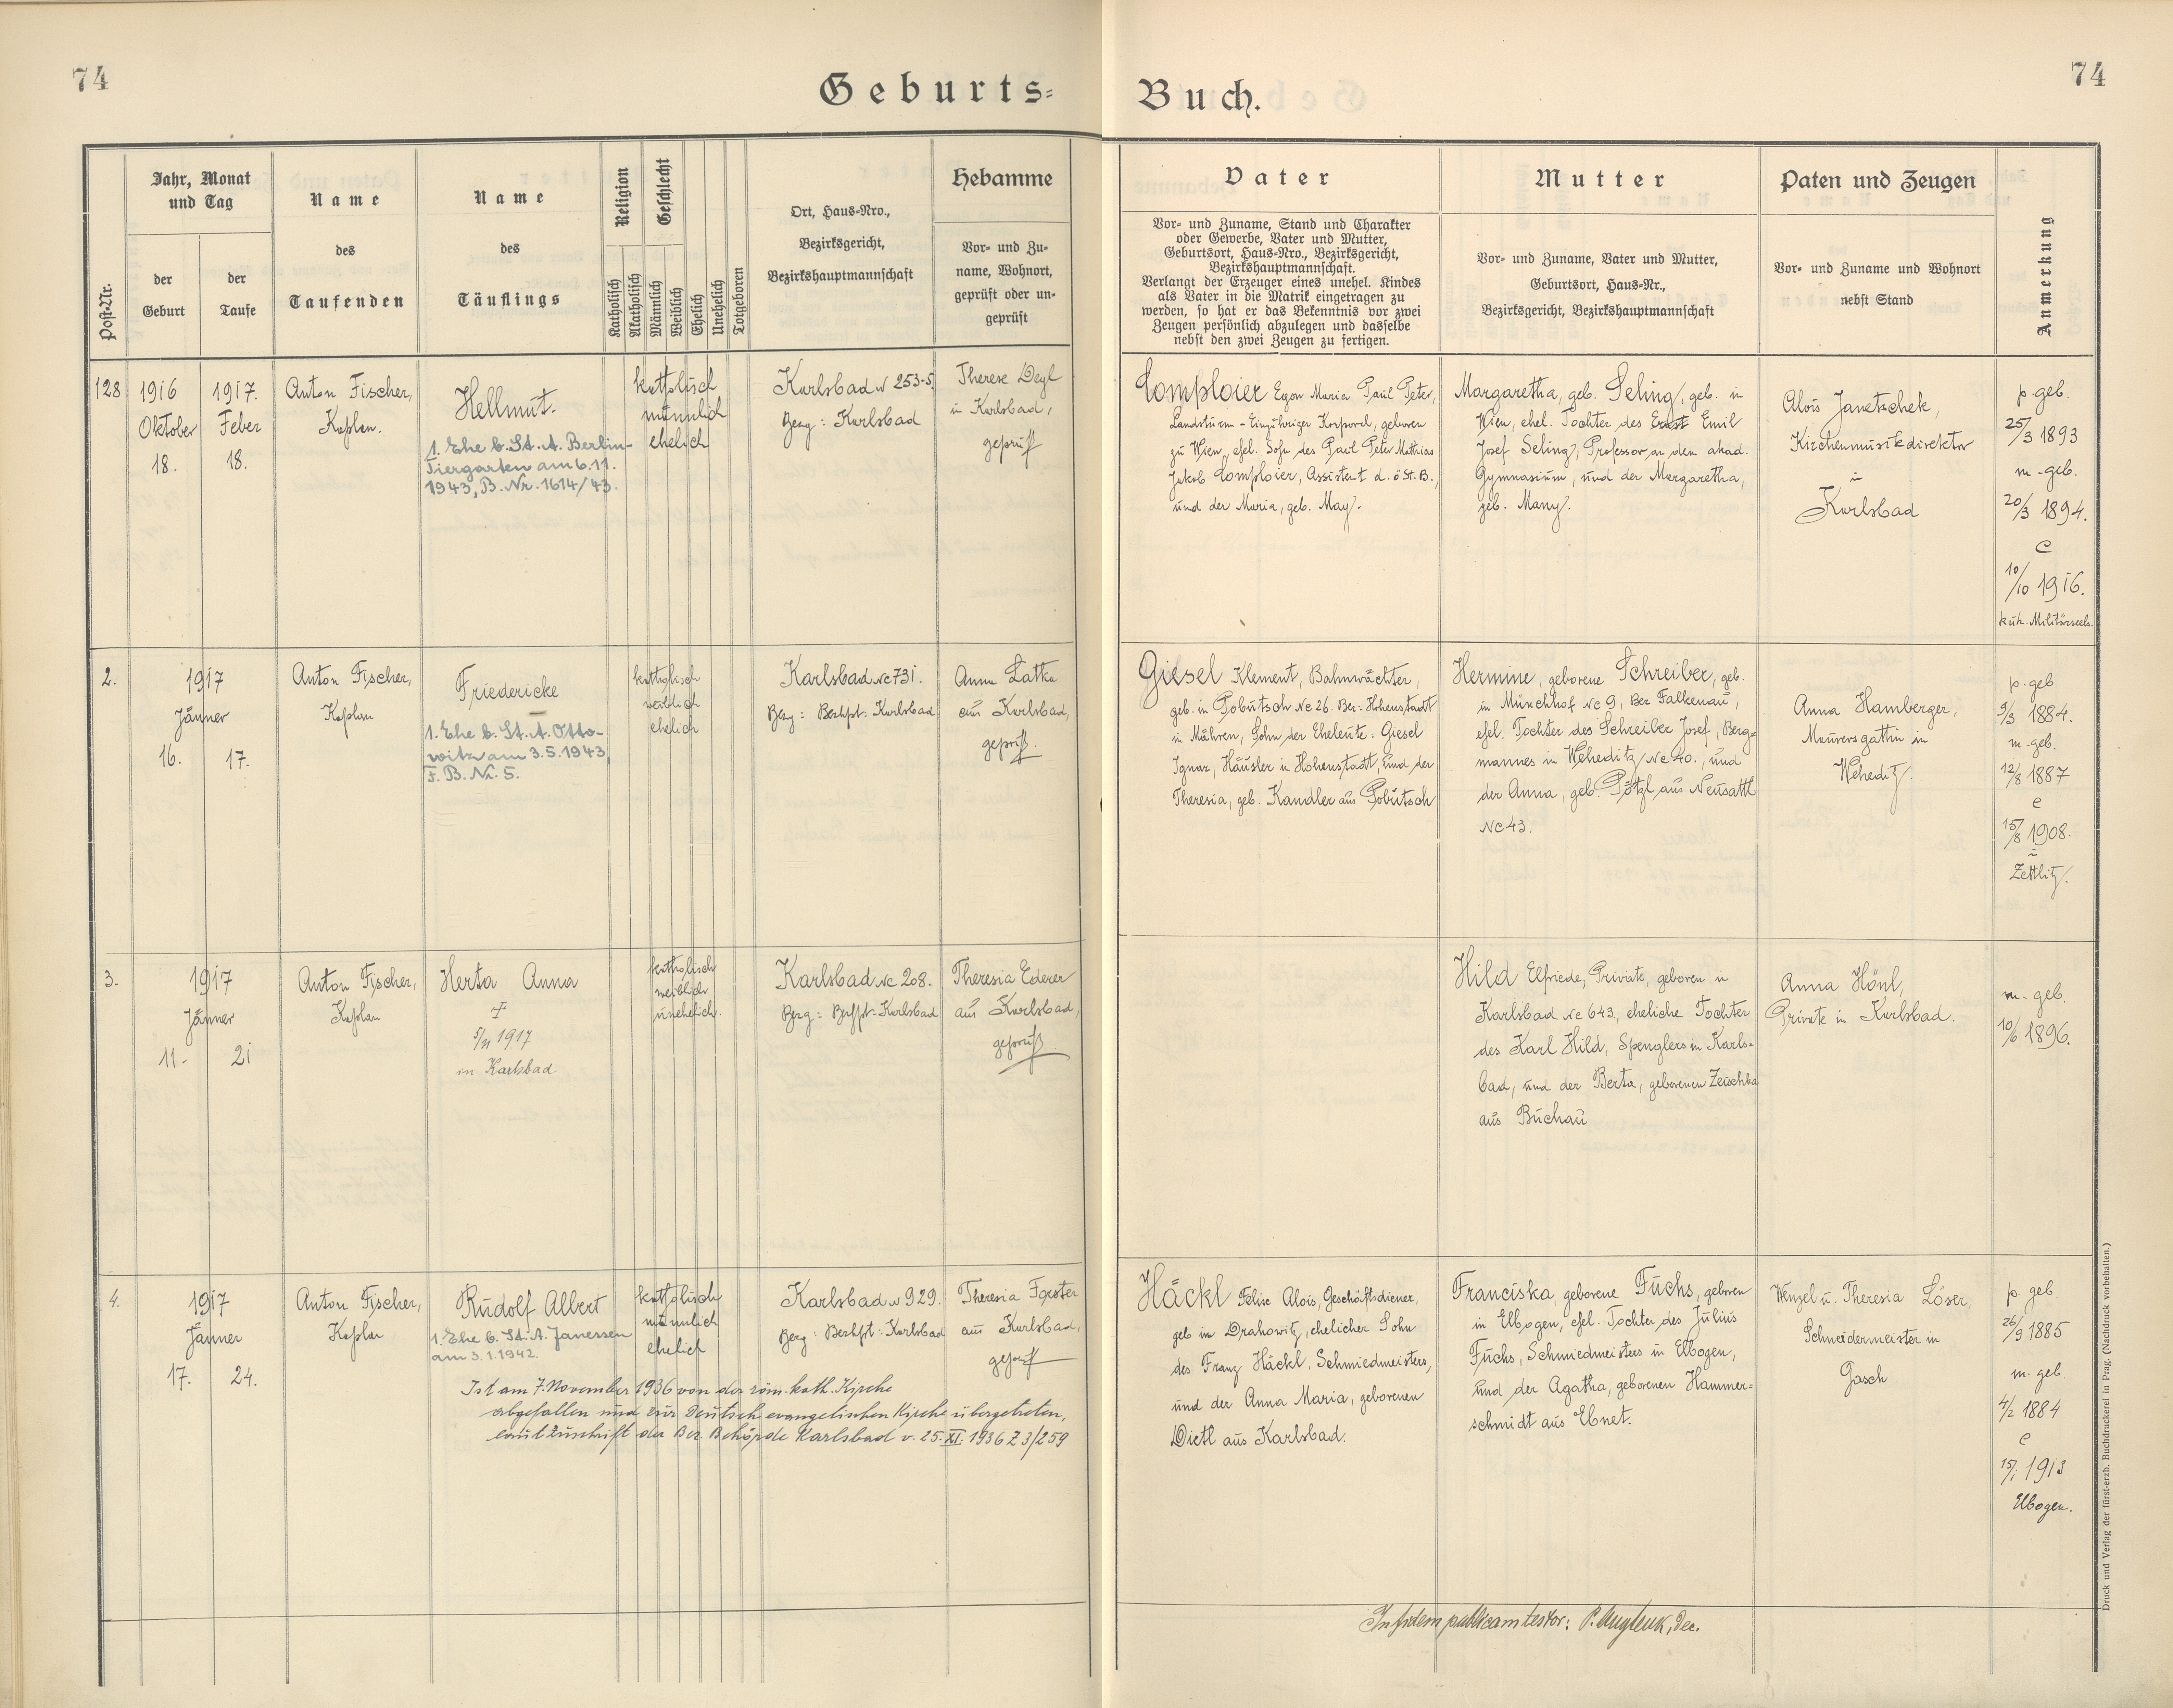 74
Geburts=
Buch.
74
Post-Nr.
Jahr, Monat
und Tag
der
Geburt
der
Taufe
Name
des
Taufenden
Name
des
Täuflings
Religion
Katholisch
Akatholisch
Geschlecht
Männlich
Weiblich
Ehelich
Unehelich
Totgeboren
Ort, Haus-Nro.,
Bezirksgericht,
Bezirkshauptmannschaft
Hebamme
Vor- und Zu-
name, Wohnort,
geprüft oder un-
geprüft
Vater
Vor- und Zuname, Stand und Charakter
oder Gewerbe, Vater und Mutter,
Geburtsort, Haus-Nro., Bezirksgericht,
Bezirkshauptmannschaft.
Verlangt der Erzeuger eines unehel. Kindes
als Vater in die Matrik eingetragen zu
werden, so hat er das Bekenntnis vor zwei
Zeugen persönlich abzulegen und dasselbe
nebst den zwei Zeugen zu fertigen.
Mutter
Vor- und Zuname, Vater und Mutter,
Geburtsort, Haus-Nr.,
Bezirksgericht, Bezirkshauptmannschaft
Paten und Zeugen
Vor- und Zuname und Wohnort
nebst Stand
Anmerkung
128
1916
Oktober
18.
1917.
Feber
18.
Anton Fischer,
Kaplan.
Hellmut.
1. Ehe b. St. A. Berlin-
Tiergarten am 6.11.
1943, B. Nr. 1614/43.
katholisch
männlich
ehelich
Karlsbad № 253-5,
Bezg: Karlsbad
Therese Degl
in Karlsbad,
geprüft
Comploier Egon Maria Paul Peter,
Landsturm-Einjähriger Korporal, geboren
zu Wien, ehel. Sohn des Paul Peter Mathias
Jakob Comploier, Assistent d. ö. St. B.,
und der Maria, geb. May.
Margaretha, geb. Seling, geb. in
Wien, ehel. Tochter des Ernst Emil
Josef Seling, Professor an dem akad.
Gymnasium, und der Margaretha,
geb. Many.
Alois Janetschek,
Kirchenmusikdirektor
in
Karlsbad
p. geb.
25/3 1893
m. geb.
20/3 1894.
C
10/10 1916.
k.u.k. Militärseels.
2.
1917
Jänner
16.
17.
Anton Fischer,
Kaplan
Friedericke
1. Ehe b. St. A. Otto-
witz am 3.5.1943,
F. B. Nr. 5.
katholisch
weiblich
ehelich
Karlsbad Nc 731.
Bezg: Bezhpt: Karlsbad
Anna Latka
aus Karlsbad,
geprüft.
Giesel Klement, Bahnwächter,
geb. in Pobutsch Nc 26. Bez: Hohenstadt
in Mähren, Sohn der Eheleute: Giesel
Ignaz, Häusler in Hohenstadt, und der
Theresia, geb. Kandler aus Pobutsch
Hermine, geborene Schreiber, geb.
in Münchhof Nc 9, Bez Falkenau,
ehel. Tochter des Schreiber Josef, Berg=
mannes in Weheditz, Nc 40., und
der Anna, geb. Pötzl aus Neusattl
Nc 43.
Anna Hamberger,
Maurersgattin in
Weheditz.
p. geb
9/3 1884.
m. geb.
12/8 1887
C
15/8 1908.
in
Zettlitz.
3.
1917
Jänner
11.
21
Anton Fischer,
Kaplan
Herta Anna
+
5/11 1917
in Karlsbad
katholisch
weiblich
unehelich.
Karlsbad Nc 208.
Bezg: Bezhpt: Karlsbad
Theresia Ederer
aus Karlsbad,
geprüft.
Hild Elfriede, Private, geboren in
Karlsbad Nc 643, eheliche Tochter
des Karl Hild, Spenglers in Karls-
bad, und der Berta, geborenen Zeuschka
aus Buchau
Anna Hönl,
Private in Karlsbad.
m. geb.
10/6 1896.
4.
1917
Jänner
17.
24.
Anton Fischer,
Kaplan
Rudolf Albert
1. Ehe b. St. A. Janessen
am 3.1.1942.
katholisch
männlich
ehelich
Karlsbad № 929.
Bezg: Bezhpt: Karlsbad
Theresia Forster
aus Karlsbad,
geprüft
Ist am 7. November 1936 von der röm. kath. Kirche
abgefallen und zur Deutsch evangelischen Kirche übergetreten,
laut Zuschrift der Bez. Behörde Karlsbad v. 25. XI. 1936 Z 3/259
Häckl Felix Alois, Geschäftsdiener,
geb in Drahowitz, ehelicher Sohn
des Franz Häckl, Schmiedmeisters,
und der Anna Maria, geborenen
Dietl aus Karlsbad.
Franciska, geborene Fuchs, geboren
in Elbogen, ehel. Tochter des Julius
Fuchs, Schmiedmeisters in Elbogen,
und der Agatha, geborenen Hammer=
schmidt aus Ebnet.
Wenzel u. Theresia Löser,
Schneidermeister in
Gasch
p. geb
26/9 1885
m. geb.
4/2 1884
C
15/1 1913
Elbogen.
In fidem publicam testor: P. Dec.
Druck und Verlag der fürst-erzb. Buchdruckerei in Prag. (Nachdruck vorbehalten.)